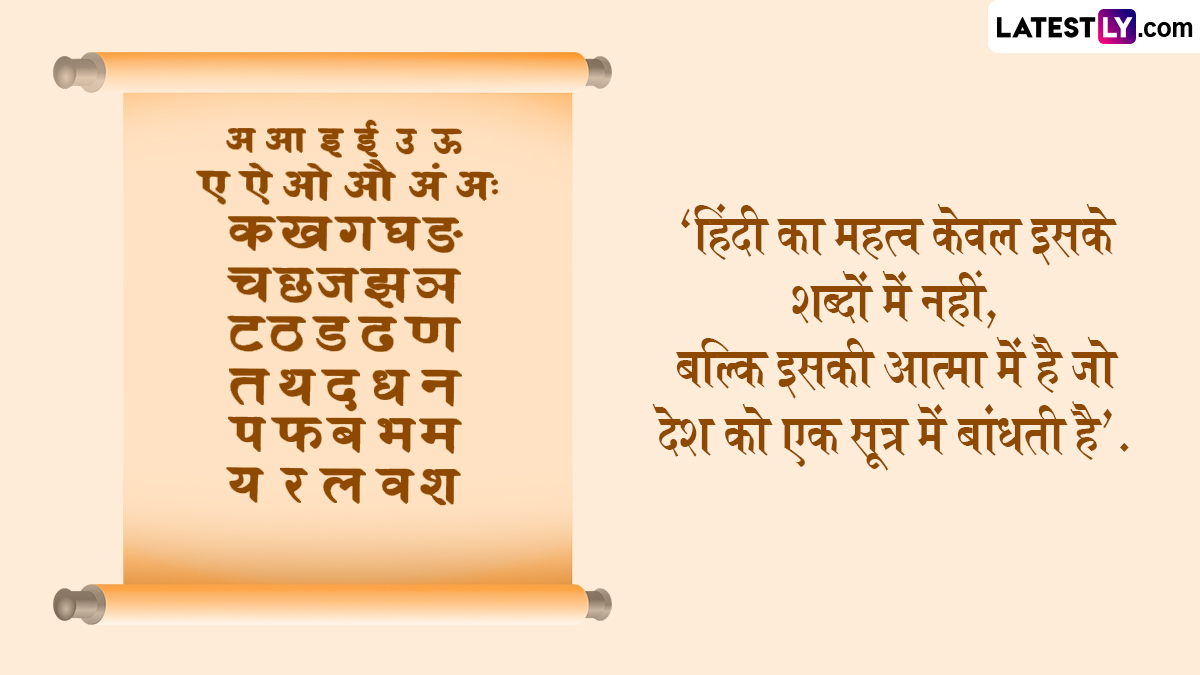 LATESTLY.com
अ आ इ ई उ ऊ
ए ऐ ओ औ अं अः
क ख ग घ ङ
च छ ज झ ञ
ट ठ ड ढ ण
त थ द ध न
प फ ब भ म
य र ल व श
‘हिंदी का महत्व केवल इसके
शब्दों में नहीं,
बल्कि इसकी आत्मा में है जो
देश को एक सूत्र में बांधती है’.